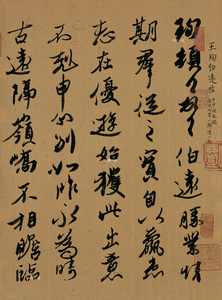 珣頓首頓首伯遠勝業情
期羣從之寶自以羸患
志在優遊始獲此出意
不剋申分別如昨永為疇
古遠隔嶺嶠不相瞻臨
王珣伯遠帖